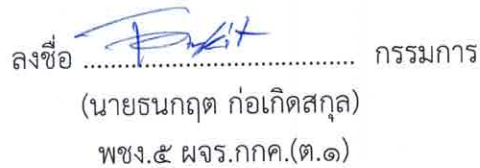 ลงชื่อ .................................... กรรมการ
(นายธนกฤต ก่อเกิดสกุล)
พชง.๕ ผจร.กกค.(ต.๑)